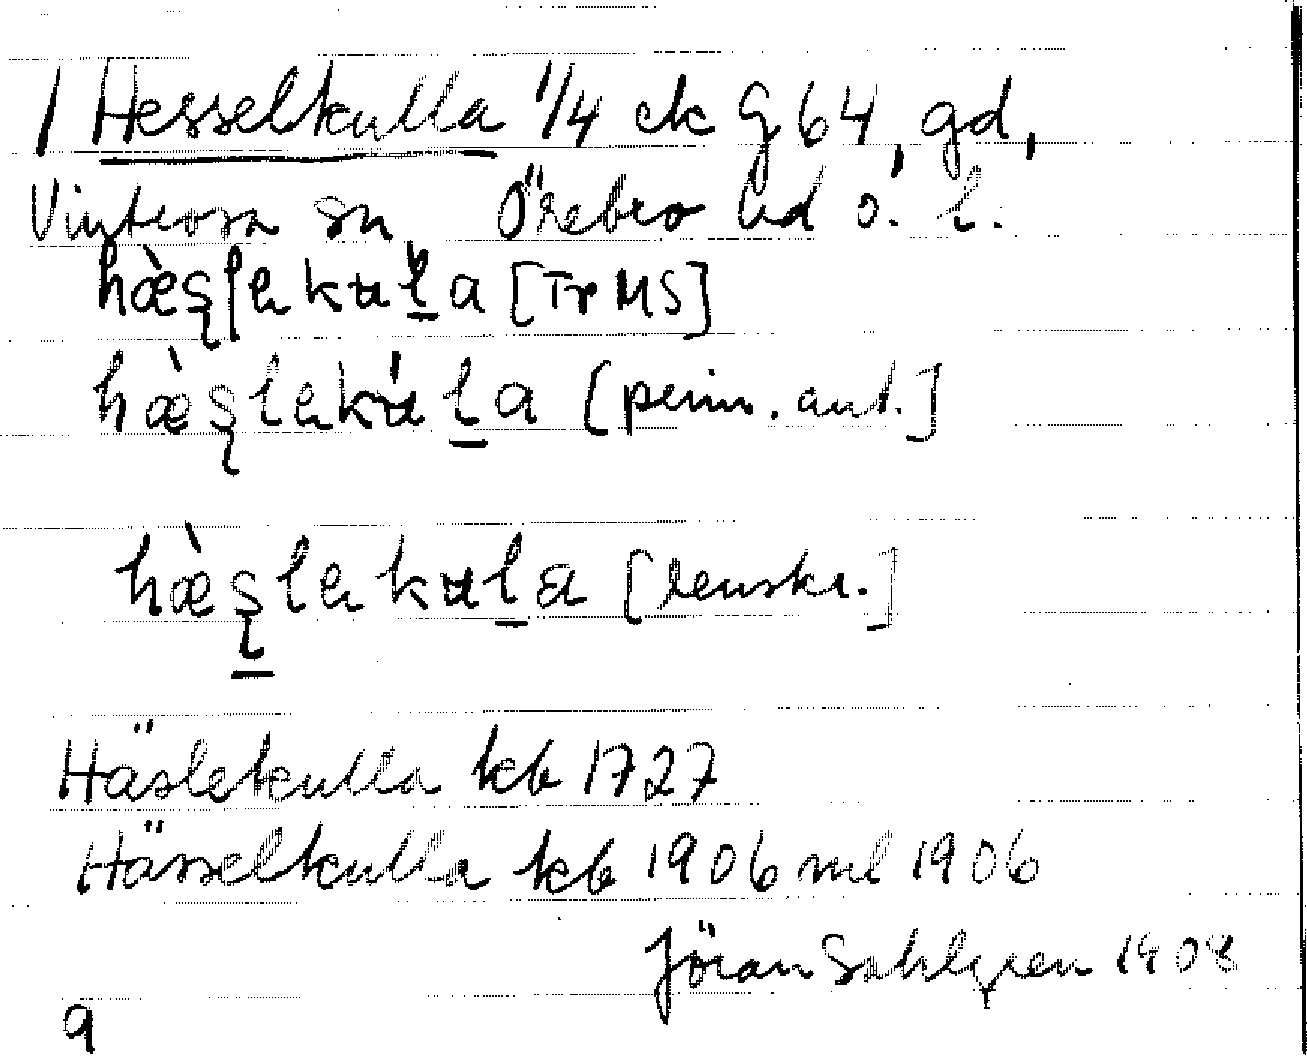 / Hesselkulla 1/4 ek G 64, gd,
Vintrosa sn Örebro hd ö. l.
hæ̀s̨lekʉl̲a [Tr MS]
hæ̀s̨lekʉ́l̲a [penn. ant.]
hæ̀s̨lekʉl̲a [renskr.]
Häslekulla kb 1727
Hässelkulla kb 1906 ml 1906
Jöran Sahlgren 1908
9